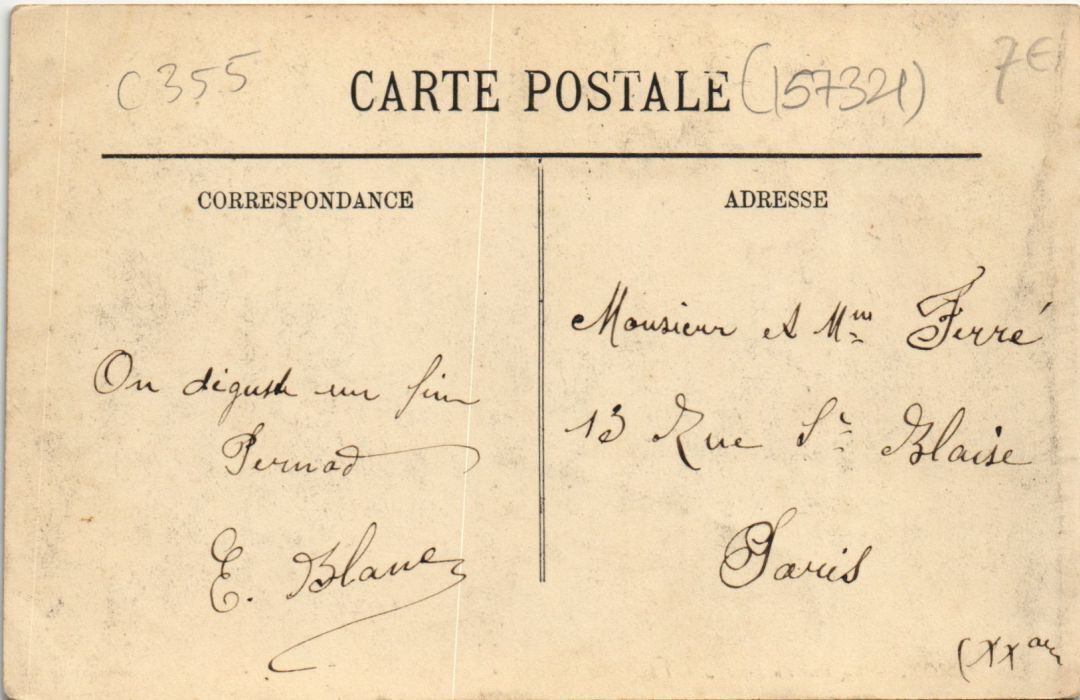 C 355
CARTE POSTALE (157321)
7€
CORRESPONDANCE
ADRESSE
On déguste un fin
Pernod
E. Blanc
Monsieur et Mme Ferré
13 Rue St Blaise
Paris
(XXe